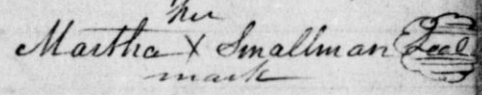 her
Martha X Smallman Seal
mark